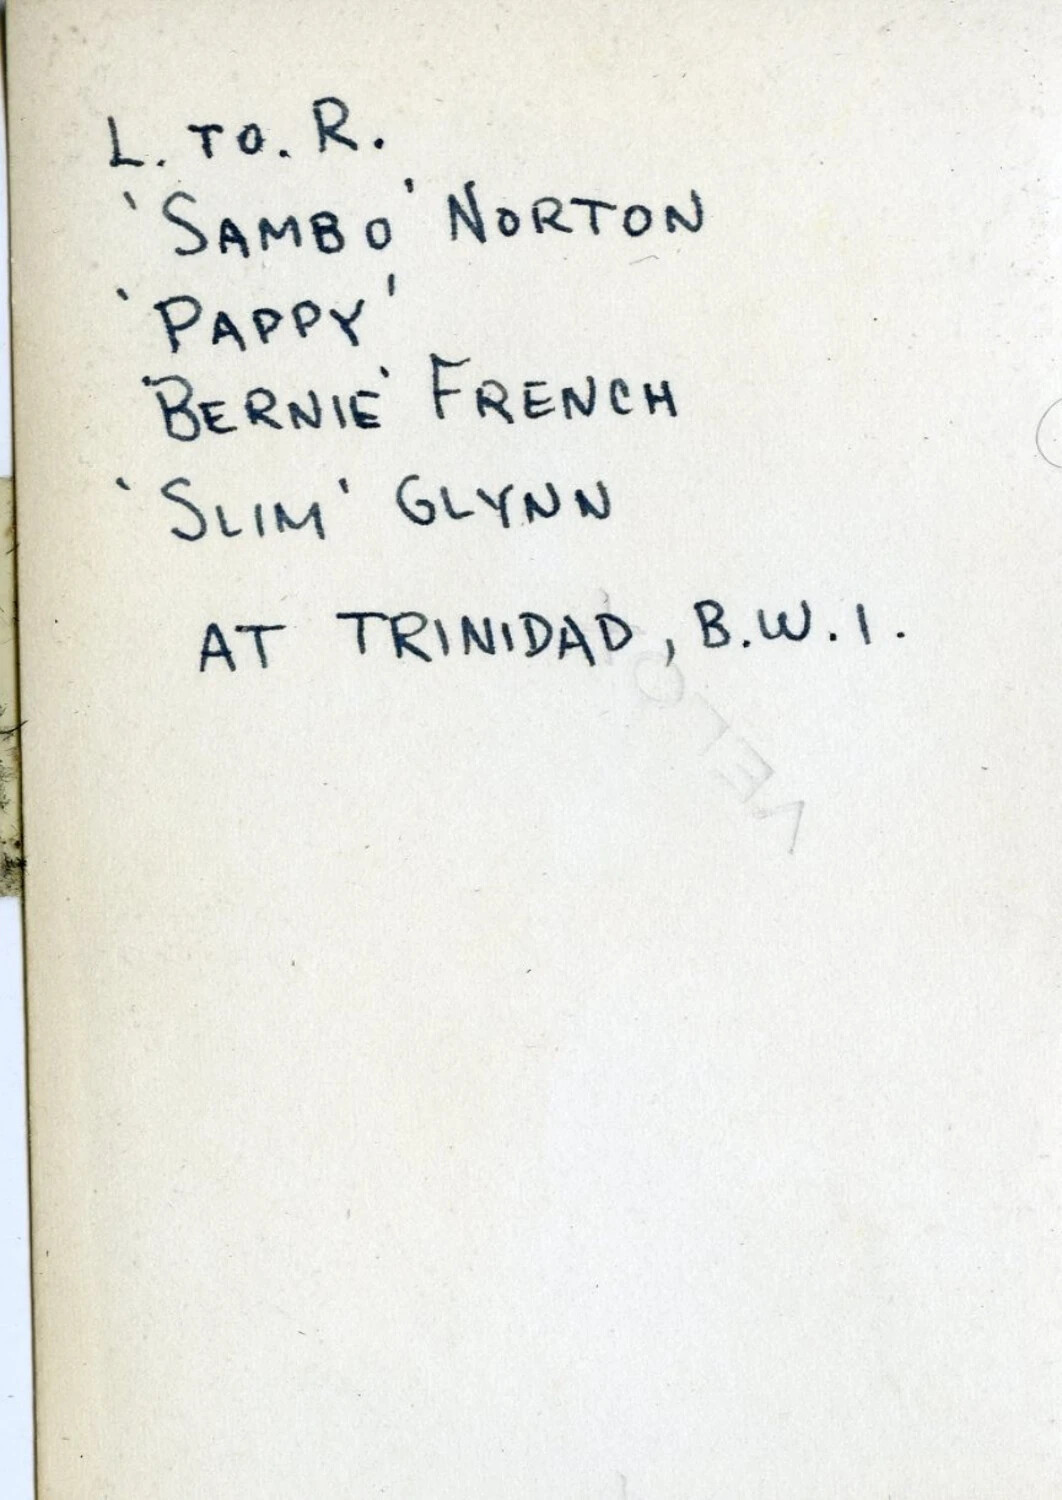 L. TO. R.
'SAMBO' NORTON
'PAPPY'
'BERNIE' FRENCH
'SLIM' GLYNN
AT TRINIDAD, B.W.I.